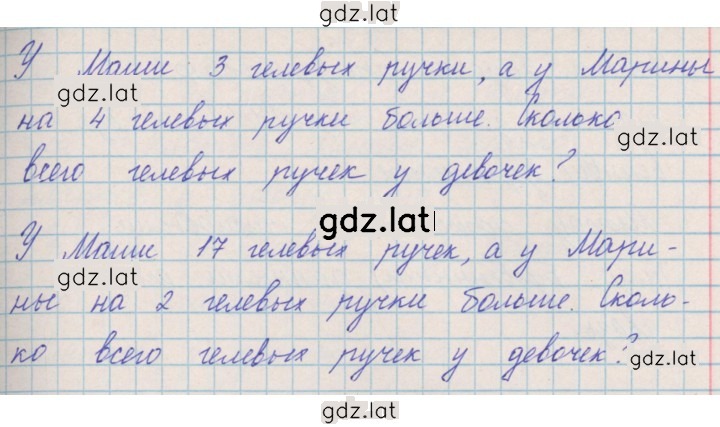 gdz.lat
У Маши 3 гелевых ручки, а у Марины
gdz.lat
на 4 гелевых ручки больше. Сколько
gdz.lat
всего гелевых ручек у девочек?
gdz.lat
У Маши 17 гелевых ручек, а у Мари-
gdz.lat
ны на 2 гелевых ручки больше. Сколь-
ко всего гелевых ручек у девочек?
gdz.lat
gdz.lat